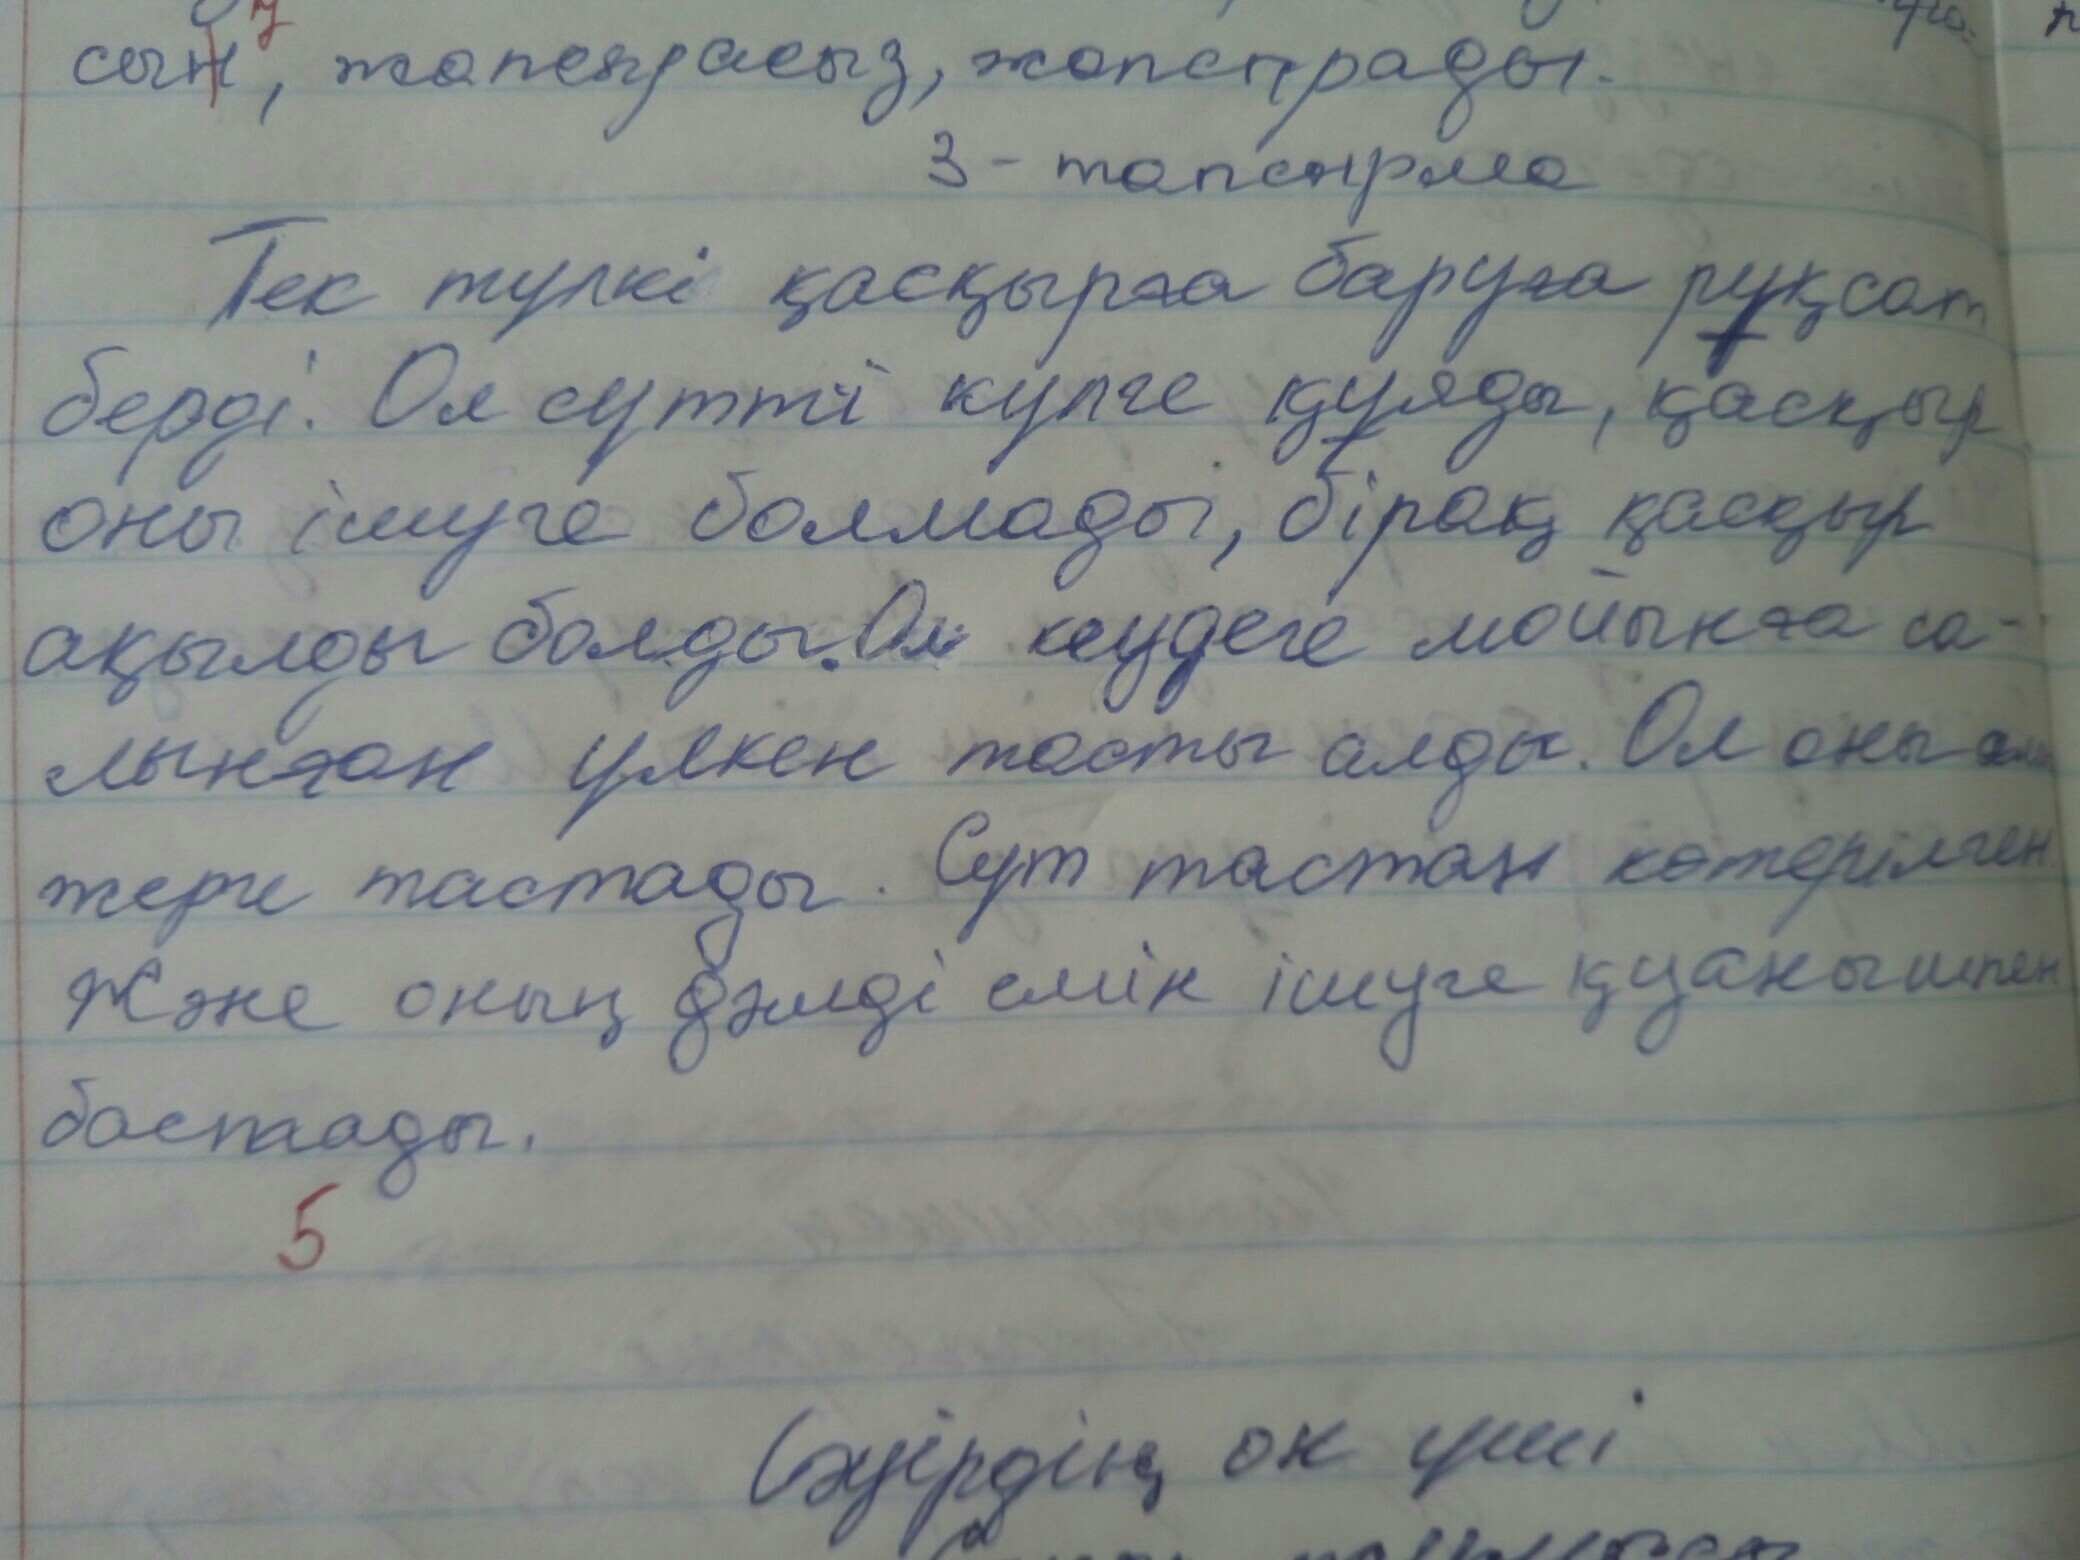 сын, жапсырасыз, жапсырады.
3 - тапсырма
Тек түлкі қасқырға баруға рұқсат
берді. Ол сүтті күпге құяды, қасқыр
оны ішуге болмады, бірақ қасқыр
ақылды болды. Ол кеудеге мойынға са-
лынған үлкен тасты алды. Ол оны
жерге тастады. Сүт тастан көтерілген
Және оның дәмді емін ішуге қуанышпен
бастады.
5
Сәуірдің он үші